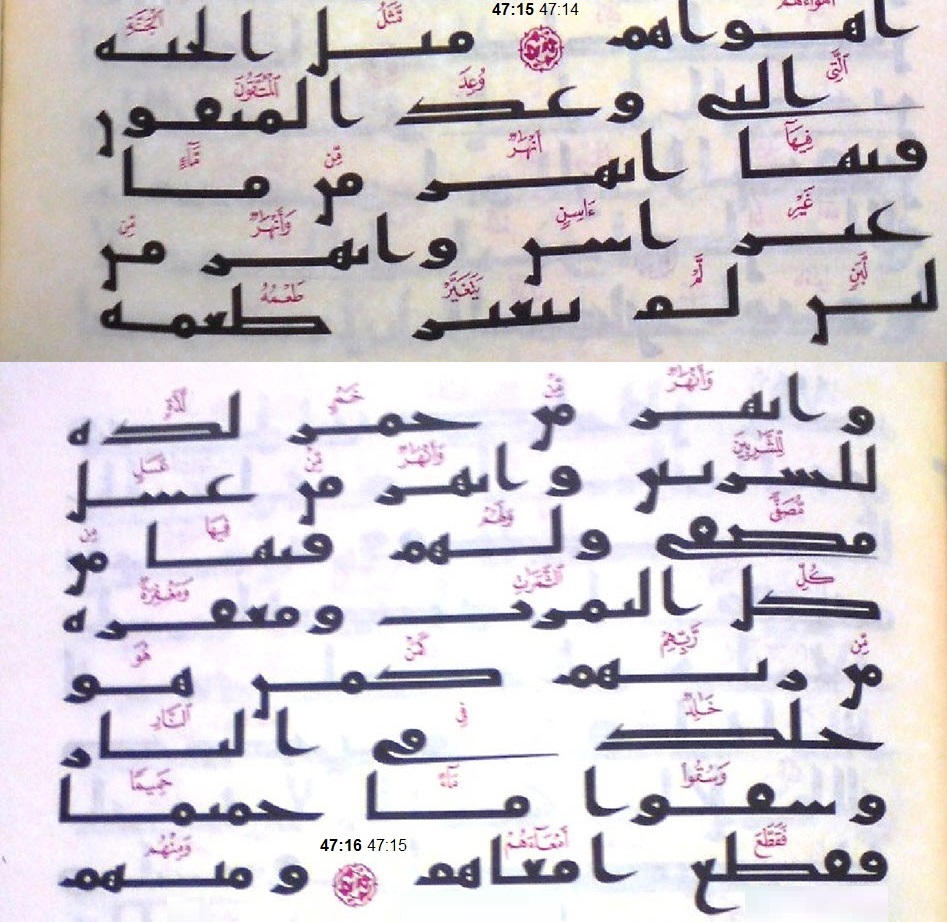 47:15 47:14
أَهْوَآءَهُم مَّثَلُ ٱلْجَنَّةِ
اهواهم مثل الجنه
ٱلَّتِى وُعِدَ ٱلْمُتَّقُونَ
التى وعد المتقون
فِيهَآ أَنْهَٰرٌ مِّن مَّآءٍ
فيها انهر من ما
غَيْرِ ءَاسِنٍ وَأَنْهَٰرٌ مِّن
غير اسن وانهر من
لَّبَنٍ لَّمْ يَتَغَيَّرْ طَعْمُهُۥ
لبن لم يتغير طعمه
وَأَنْهَٰرٌ مِّنْ خَمْرٍ لَّذَّةٍ
وانهر من خمر لذه
لِّلشَّٰرِبِينَ وَأَنْهَٰرٌ مِّنْ عَسَلٍ
للشربين وانهر من عسل
مُّصَفًّى وَلَهُمْ فِيهَا مِن
مصفى ولهم فيها من
كُلِّ ٱلثَّمَرَٰتِ وَمَغْفِرَةٌ
كل الثمرت ومغفره
مِّن رَّبِّهِمْ كَمَنْ هُوَ
من ربهم كمن هو
خَٰلِدٌ فِى ٱلنَّارِ
خلد فى النار
وَسُقُوا۟ مَآءً حَمِيمًا
وسقوا ما حميما
47:16 47:15
فَقَطَّعَ أَمْعَآءَهُمْ وَمِنْهُم
فقطع امعاهم ومنهم